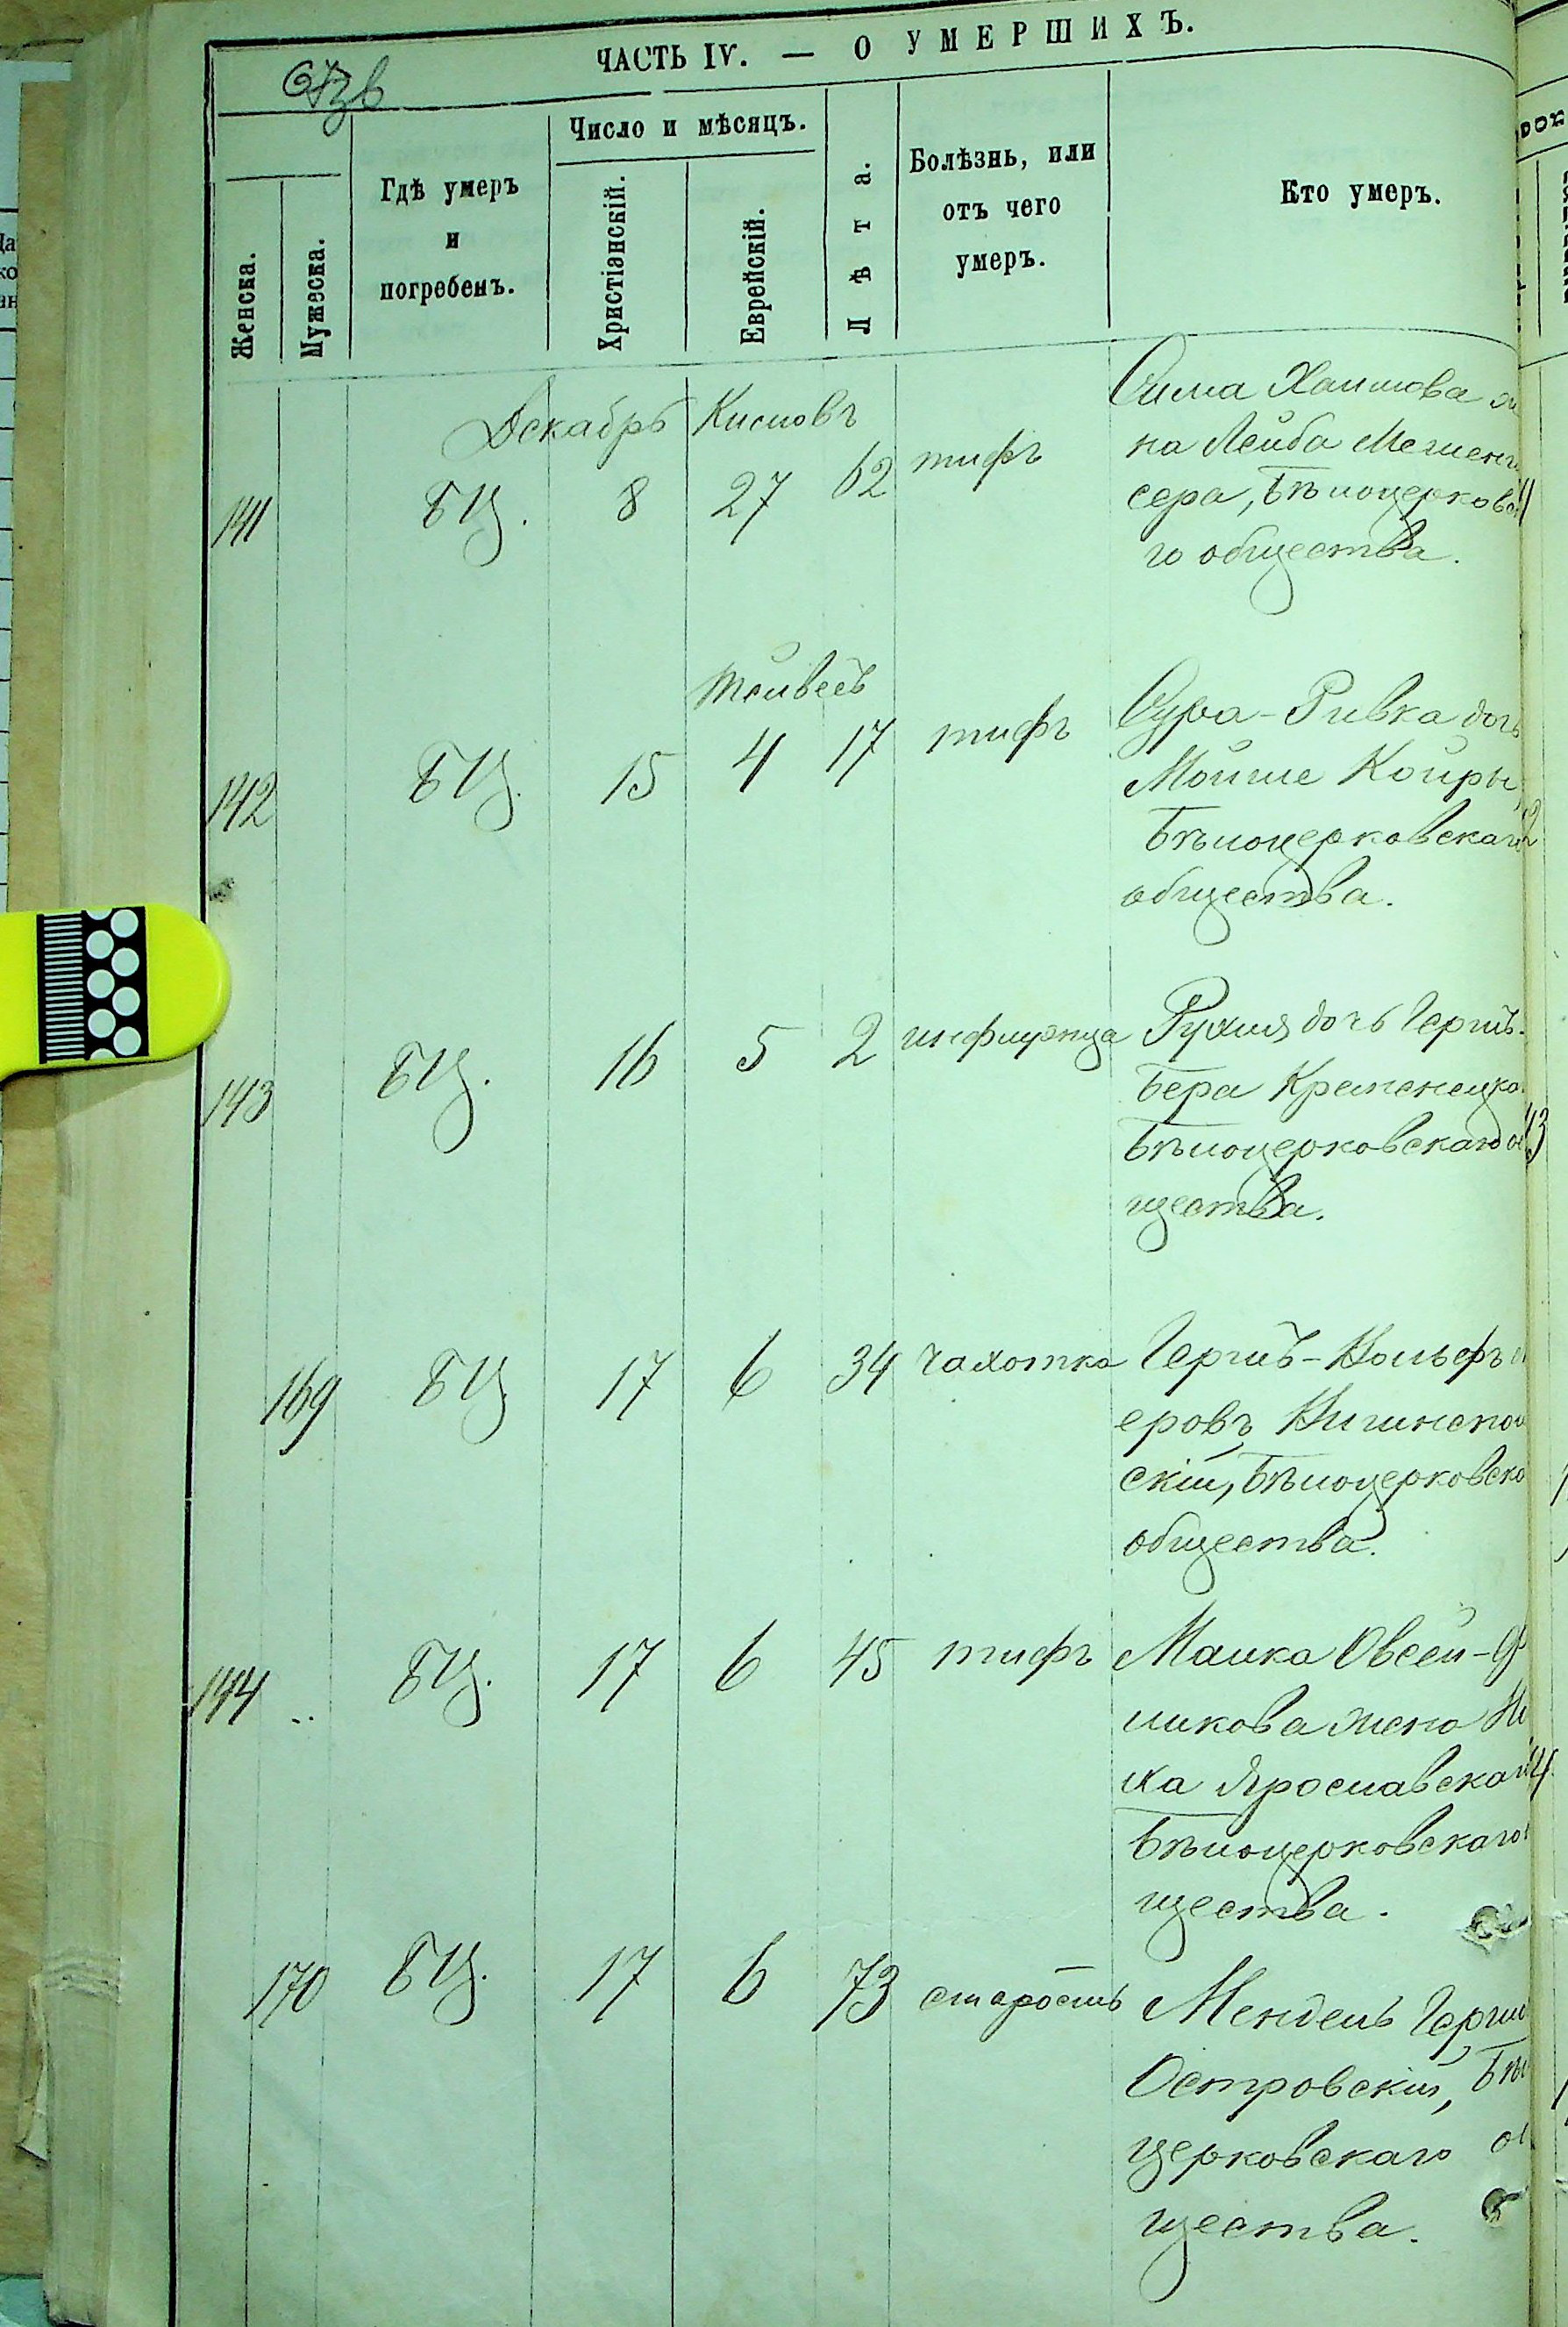 ЧАСТЬ IV. — О УМЕРШИХЪ.
Женска.
Мужеска.
Гдѣ умеръ
и
погребенъ.
Число и мѣсяцъ.
Христіанскій.
Еврейскій.
Лѣта.
Болѣзнь, или
отъ чего
умеръ.
Кто умеръ.
Декабрь Кисловъ
141 БЦ. 8 27 62 тифъ
Сима Хаимова
на Лейба
сера, Бѣлоцерковс
го общества.
Тейвесъ
142 БЦ. 15 4 17 тифъ
Сура-Ривка дочь
Мойше Койры,
Бѣлоцерковскаго
общества.
143 БЦ. 16 5 2 инфлуэнца
Рухля дочь Гершъ-
Бера Кременецко
Бѣлоцерковскаго о
щества.
169 БЦ 17 6 34 чахотка
Гершъ-Вольфъ
еровъ
скій, Бѣлоцерковско
общества.
144 БЦ. 17 6 45 тифъ
Малка Овсей-
ликова жена
ха Ярославскаг
Бѣлоцерковскаго
щества.
170 БЦ. 17 6 73 старость
Мендель Герш
Островскій, Бѣл
церковскаго о
щества.